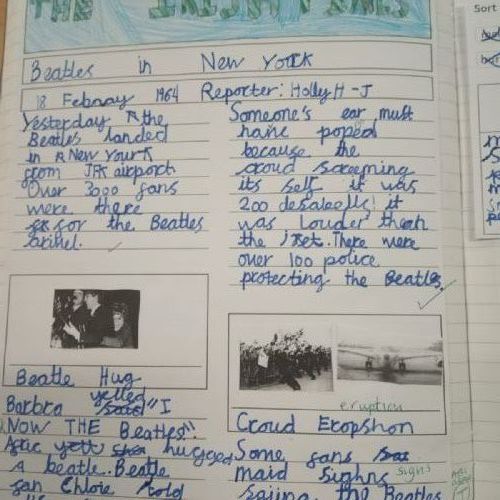 THE
TIMES
Beatles in New York
18 Febuary 1964 Reporter: Holly H-J
Yesterday the
Beatles landed
in New Yourk
from JFK airport.
Over 3000 fans
were there
for the Beatles
arivel.
Someone's ear must
have poped
because the
croud screeming
its self it was
200 desabells! it
was louder then
the jet. There were
over 100 police
protecting the Beatles.
Beatle Hug
Barbra yelled "I
NOW THE Beatles".
hugged
A beatle. Beatle
fan Chloie told
eruption
Croud Eropshon
Some fans
maid Sighns signs
saiing the Beatles
Sort